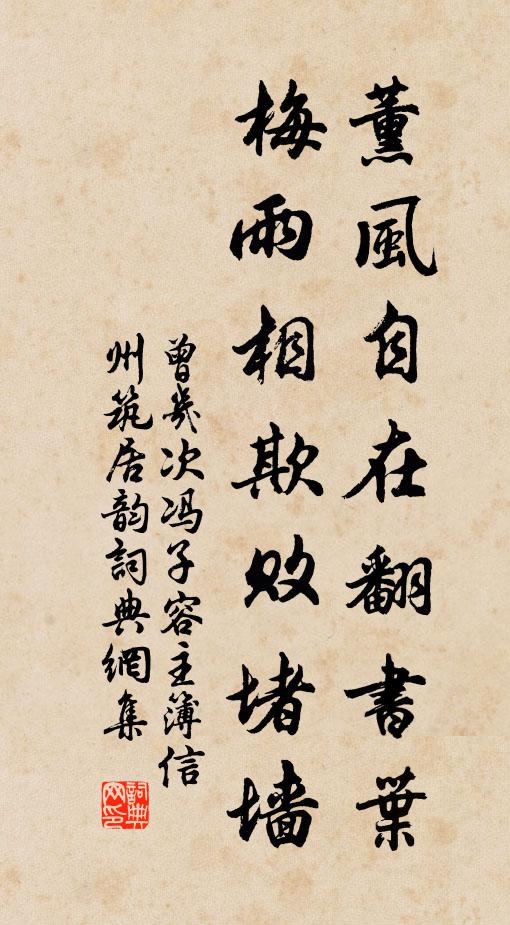 薰風自在翻書葉
梅雨相欺敗堵墻
曾幾次冯子容主簿信
州筑居韵詞典網集
詞典
网印